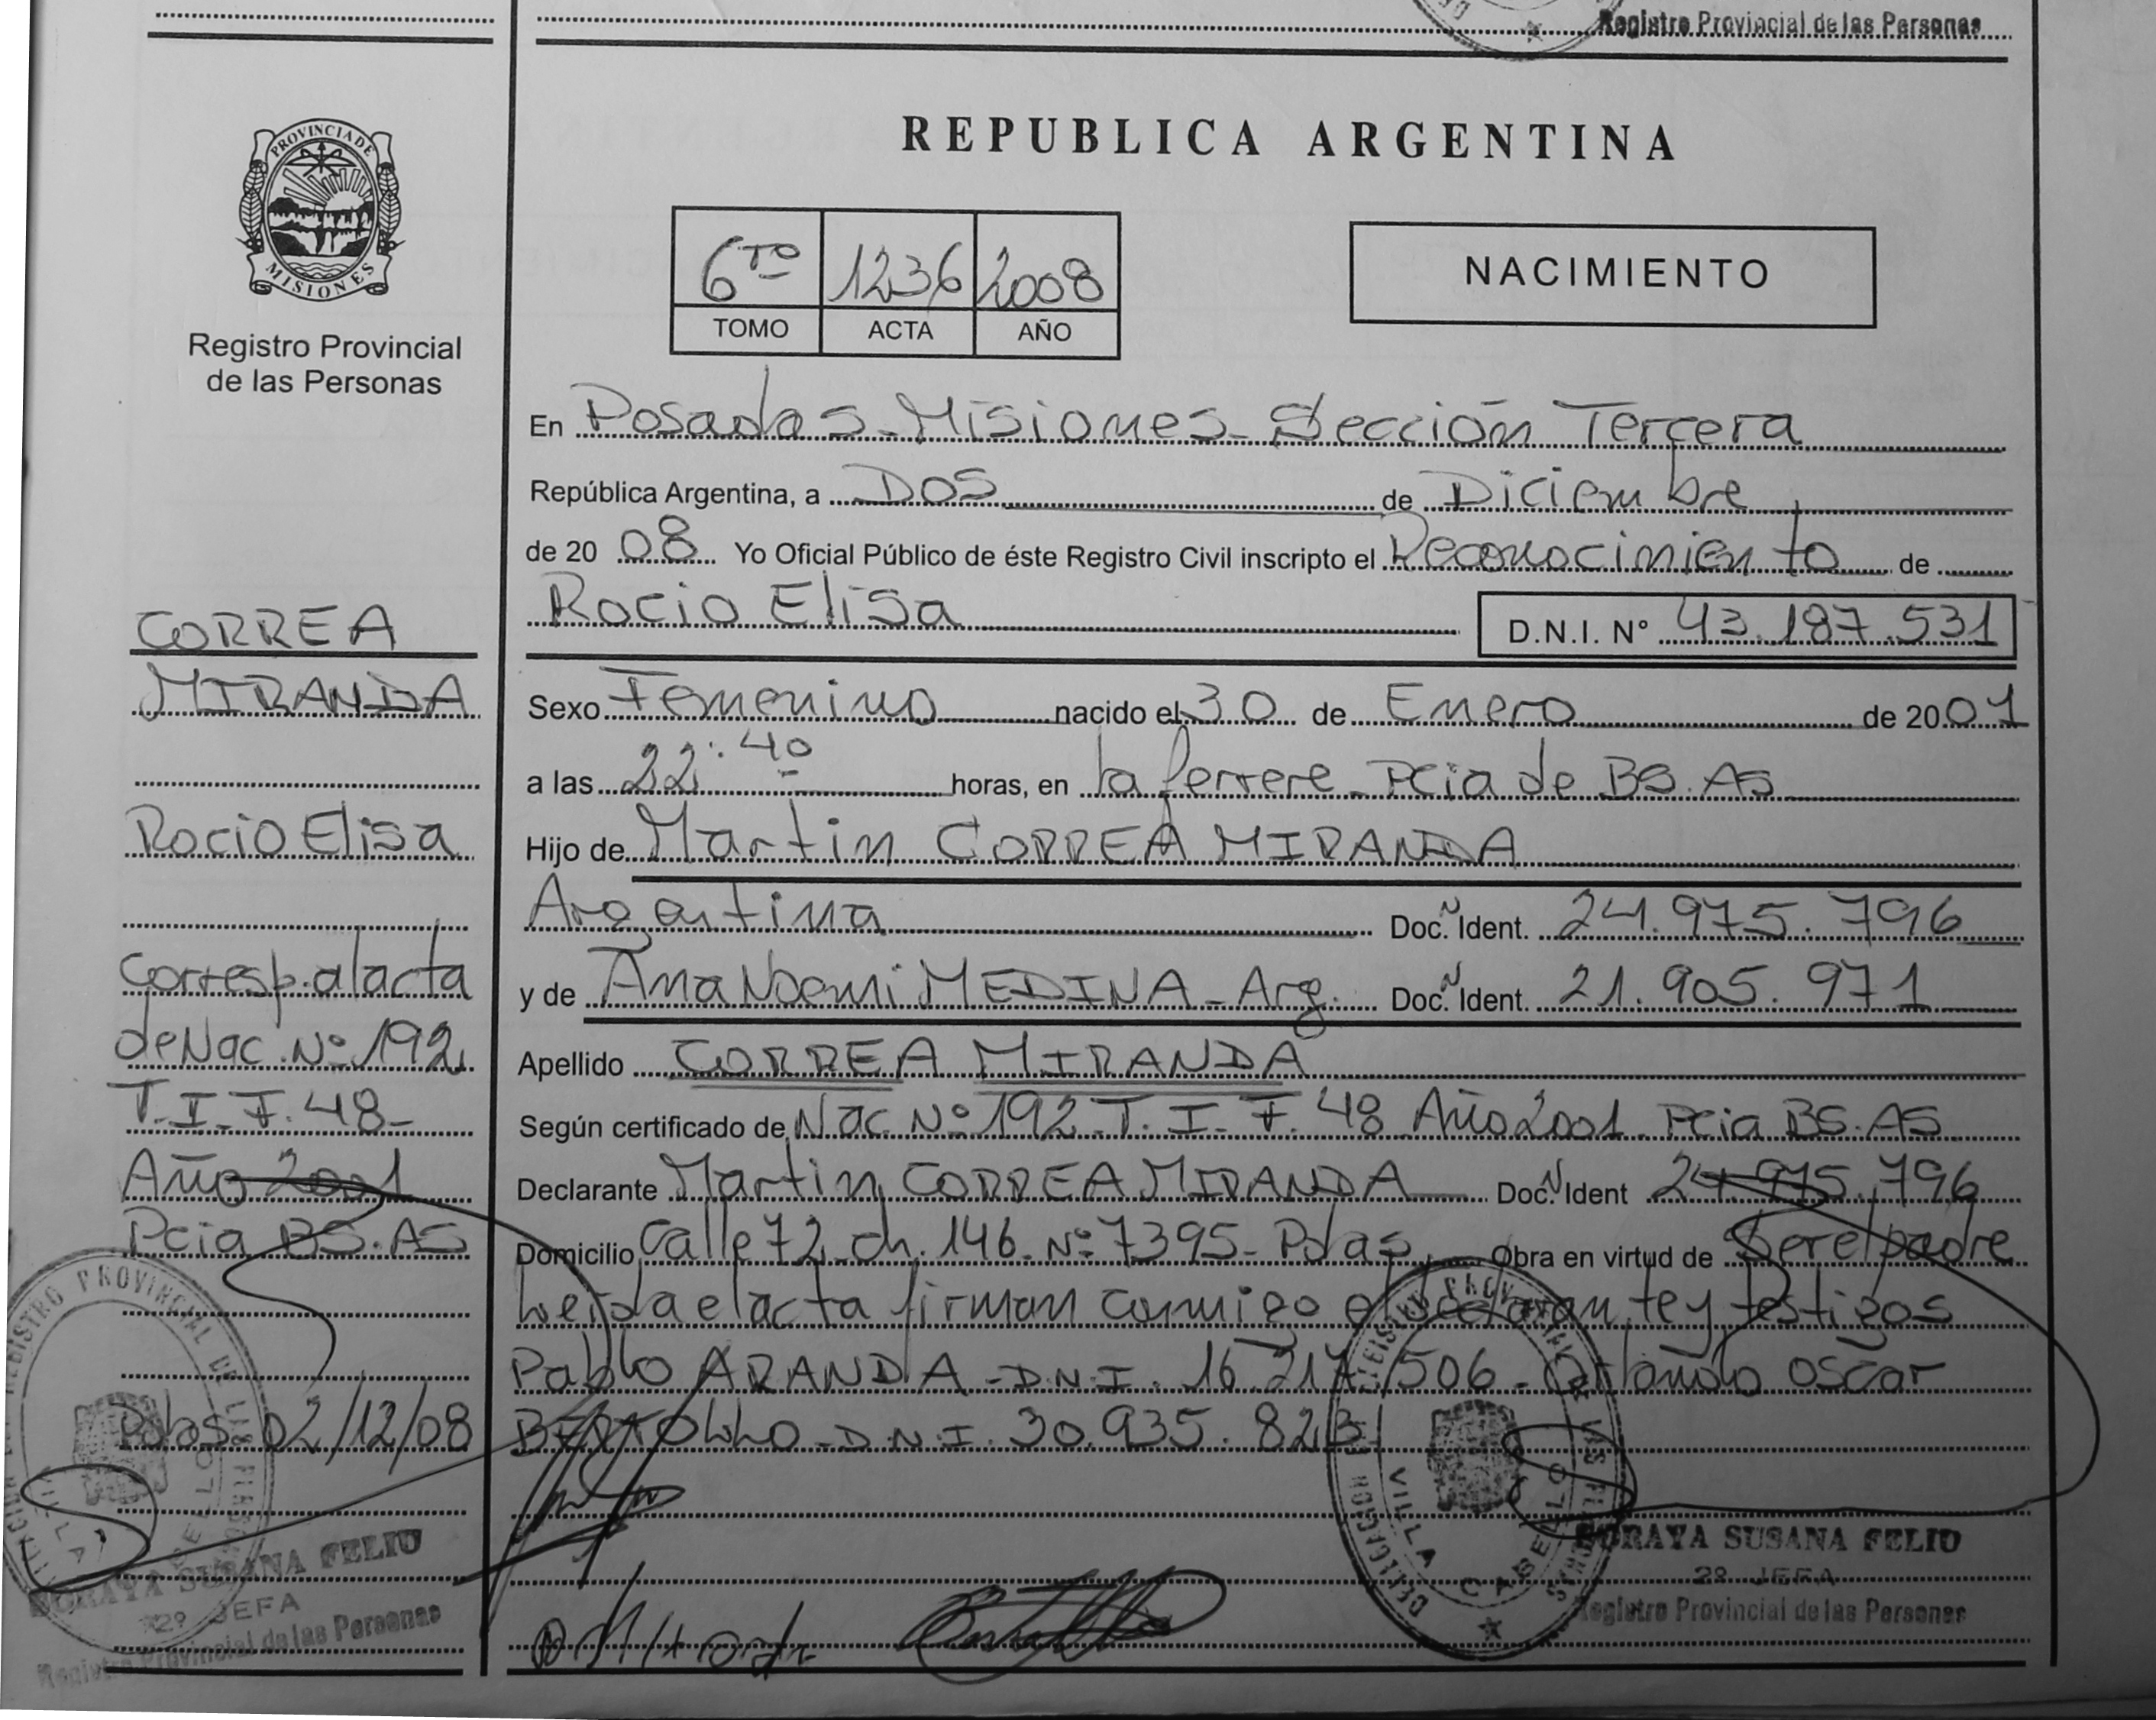 Registro Provincial de las Personas
PROVINCIA DE
MISIONES
Registro Provincial
de las Personas
CORREA
MIRANDA
Rocio Elisa
Corresp. al acta
de Nac. Nº 192
T. I F. 48-
Año 2001
Pcia BS. AS
Pdas 02/12/08
SORAYA SUSANA FELIU
2º JEFA
Registro Provincial de las Personas
REPUBLICA ARGENTINA
6TO 1236 2008
TOMO ACTA AÑO
NACIMIENTO
En Posadas - Misiones - Sección Tercera
República Argentina, a DOS de Diciembre
de 20 08 Yo Oficial Público de éste Registro Civil inscripto el Reconocimiento de
Rocio Elisa D.N.I. Nº 43.187.531
Sexo Femenino nacido el 30 de Enero de 20 01
a las 22:40 horas, en la ferrere - Pcia de BS. AS
Hijo de Martin CORREA MIRANDA
Argentina Doc. Ident. 24.975.796
y de Ana Noemi MEDINA - Arg. Doc. Ident. 21.905.971
Apellido CORREA MIRANDA
Según certificado de Nac Nº 192 T. I - F. 48 Año 2001 Pcia BS. AS
Declarante Martin CORREA MIRANDA Doc. Ident 24.975.796
Domicilio Calle 72 ch. 146 - Nº 7395 - Pdas Obra en virtud de Ser el padre
Leida el acta firman conmigo el declarante y testigos
Pablo ARANDA - D.N.I. 16.217.506 - Orlando Oscar
BERTOLLO - D.N.I. 30.935.823
DELEGACION REGISTRO PROVINCIAL DE LAS PERSONAS
VILLA CABELLO
SORAYA SUSANA FELIU
2º JEFA
Registro Provincial de las Personas